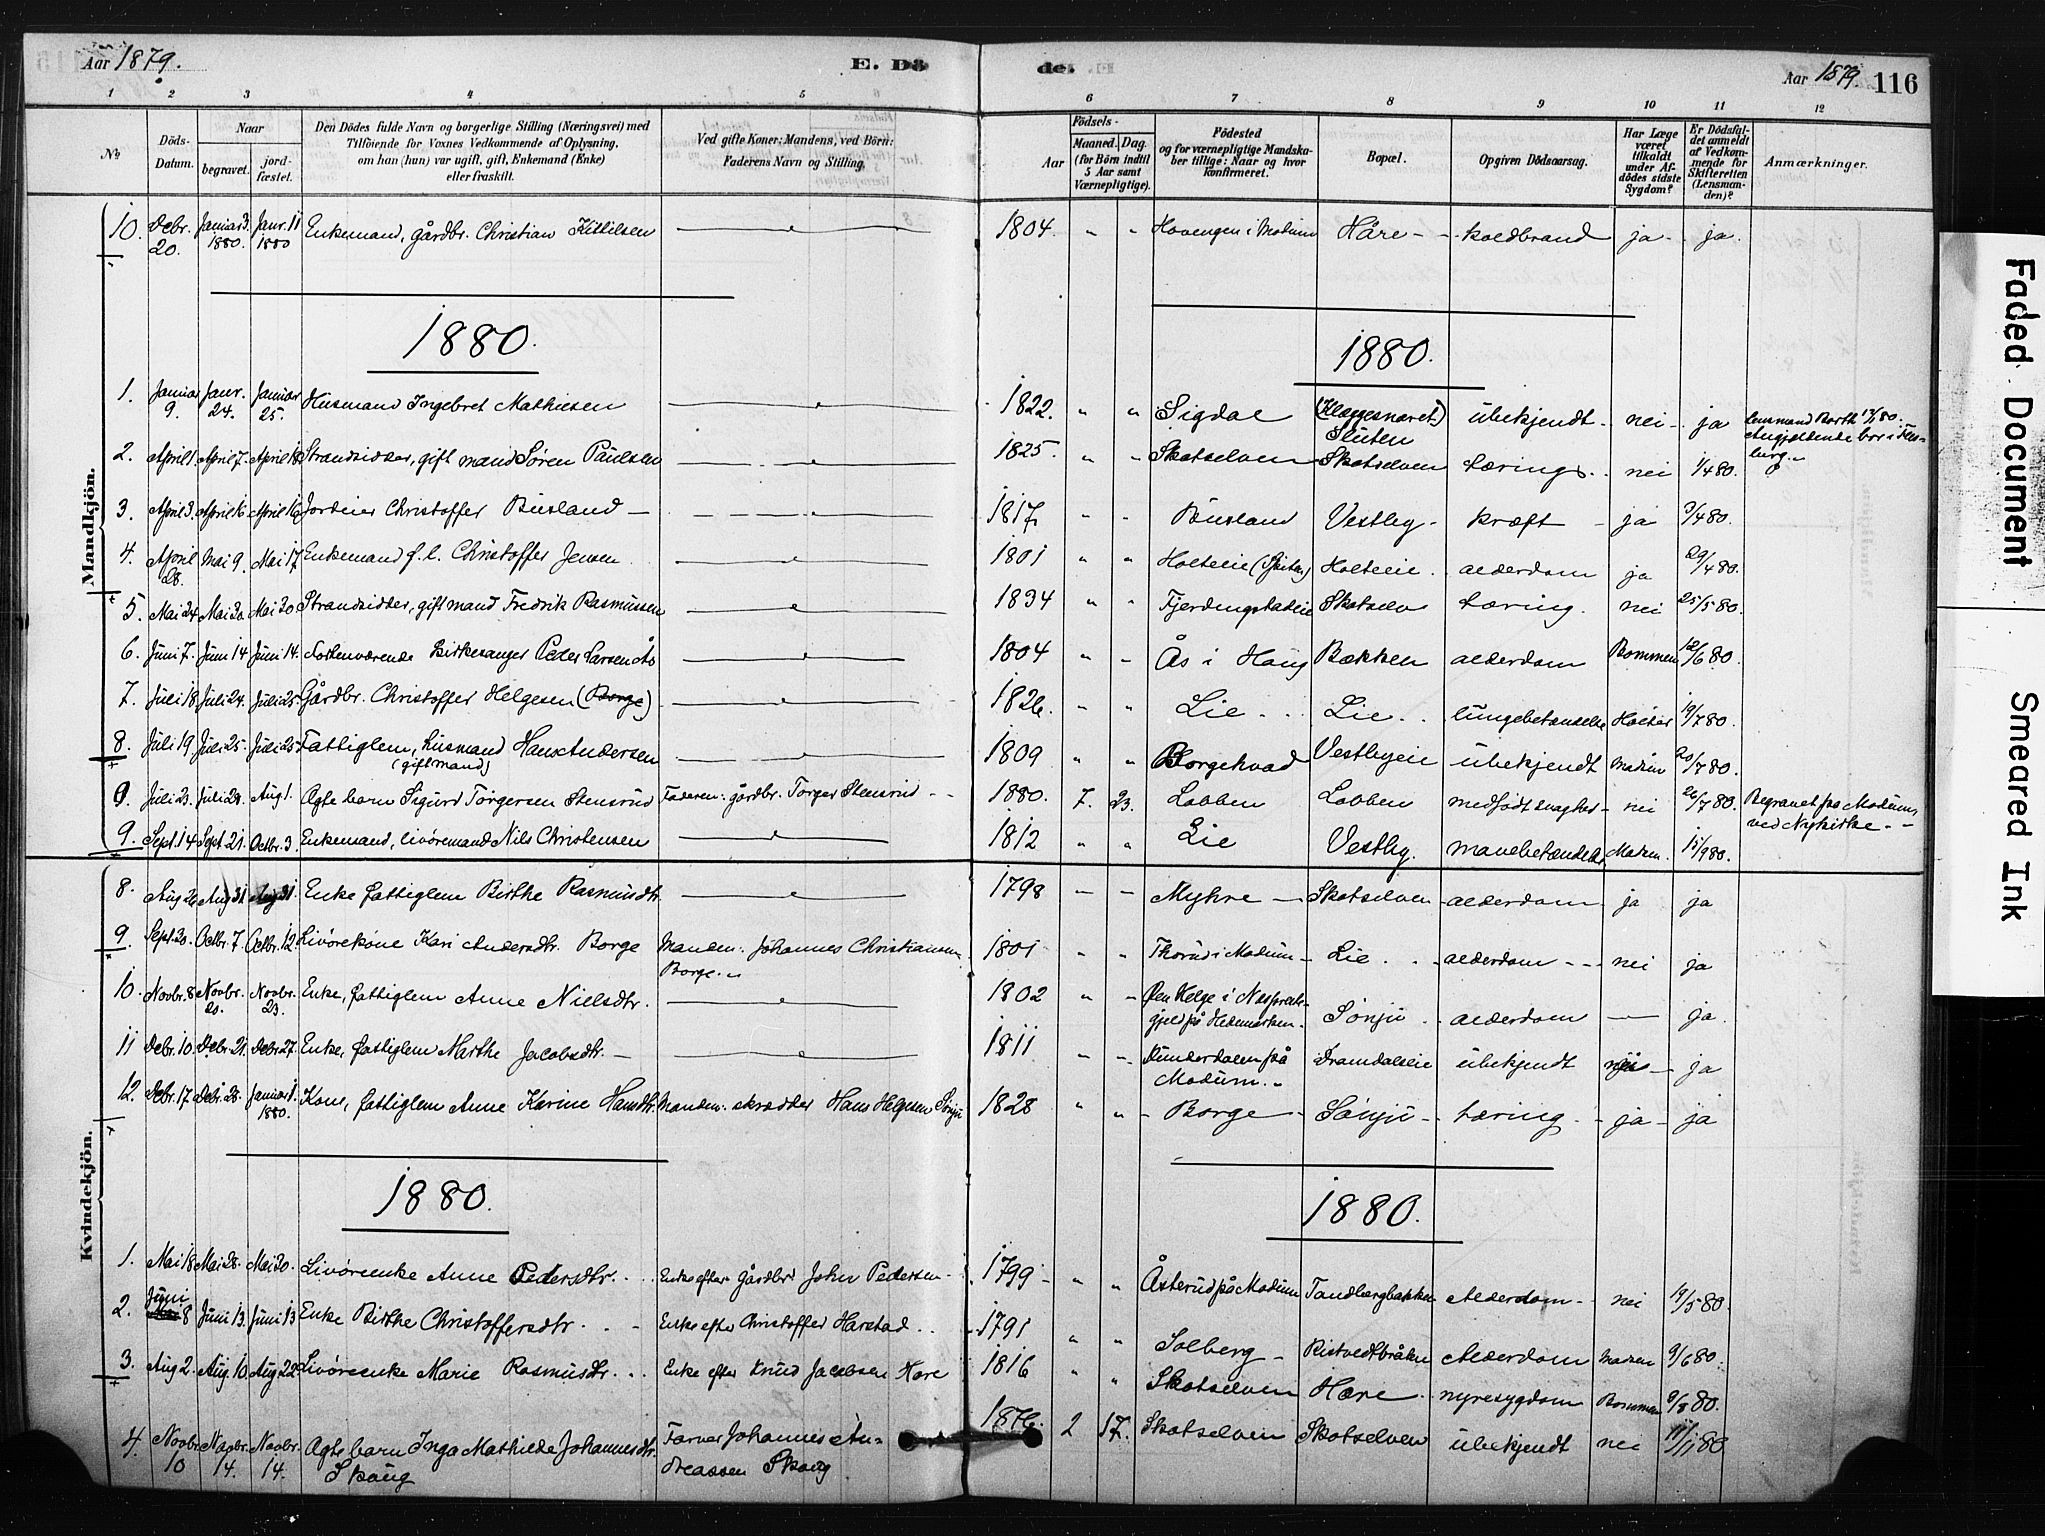 Aar 1879.
E. Dö
de.
Aar 1879. 116
1 2 3 4 5 6 7 8 9 10 11 12
No
Döds-Datum.
Naar
begravet.
jordfæstet.
Den Dödes fulde Navn og borgerlige Stilling (Næringsvei) med
Tilföiende for Voxnes Vedkommende af Oplysning,
om han (hun) var ugift, gift, Enkemand (Enke)
eller fraskilt.
Ved gifte Koner: Mandens, ved Börn:
Faderens Navn og Stilling.
Födsels-
Aar
Maaned. Dag.
(for Börn indtil
5 Aar samt
Værnepligtige).
Födested
og for værnepligtige Mandska-
ber tillige: Naar og hvor
konfirmeret.
Bopæl.
Opgiven Dödsaarsag.
Har Læge
været
tilkaldt
under Af-
dödes sidste
Sygdom?
Er Dödsfal-
det anmeldt
af Vedkom-
mende for
Skifteretten
(Lensman-
den)?
Anmærkninger.
Mandkjön.
10. Debr. 20. Januar 3. 1880. Janr. 11 1880 Enkemand, Gårdbr. Christian Kittilsen 1804. " " Hovengen i Modum Håre koldbrand ja ja.
1880. 1880.
1. Januar 9. Janr. 24. Januar 25. Husmand Ingebret Mathiesen 1822. " " Sigdal Sluten ubekjendt nei ja Lensmand
2. April 1. April 7. April 18 Strandsidder, gift mand Søren Paulsen 1825. " " Skotselven Skotselven tærings. nei 1/4 80.
3. April 3. April 16 April 16 Christoffer Busland 1817. " " Busland Vestby kræft ja 3/4 80.
4. April 28. Mai 9. Mai 17 Enkemand f. l. Christoffer Jensen 1801 " " Holteeie Holteeie alderdom ja 29/4 80.
5. Mai 24 Mai 30. Mai 30 Strandsidder, gift mand Fredrik Rasmussen 1834 " " Skotselv tæring. nei 25/5 80.
6. Juni 7. Juni 14 Juni 14. Forhenværende Kirkesanger Peder Larsen Ås 1804 " " Ås i Haug Bækken alderdom Bommen 12/6 80.
7. Juli 18 Juli 24. Juli 25. Gårdbr. Christoffer Helgesen (Borge) 1826. " " Lie Lie lungebetændelse 19/7 80.
8. Juli 19 Juli 25. Juli 25. Fattiglem, husmand Hans Andersen (gift mand) 1809 " " Borgehvad Vestbyeie ubekjendt Madsen 20/7 80.
9. Juli 23. Juli 29. Aug 1. Ægte barn Sigurd Torgersen Stensrud Faderen: gårdbr. Torger Stensrud 1880. 7. 23. Lobben Lobben medfødt svaghed nei 26/7 80. Begravet på Modum, ved Nykirke.
9. Sept. 14 Sept. 21. Octbr. 3. Enkemand, livøremand Nils Christensen 1812 " " Lie Vestby. mavebetændelse Madsen. 15/9 80.
Kvindekjön.
8. Aug 26 Aug 31 Aug 31. Enke fattiglem Birthe Rasmusdtr. 1798 Myhre Skotselven alderdom ja ja
9. Sept. 30. Octbr. 7. Octbr. 12. Livørekone Kari Andersdtr. Borge Manden: Johannes Christiansen Borge. 1801 " " Thorud i Modum Lie alderdom nei ja
10. Novbr. 8 Novbr. 20. Novbr. 23. Enke, fattiglem Anne Nielsdtr. 1802 " " Øen Helge i Næs præste-gjeld på Hedemarken. Sønju alderdom ja.
11 Debr. 10. Debr. 21. Debr. 27. Enke, fattiglem Marthe Jacobsdtr. 1811 " " på Modum. Dramdalseie ubekjendt ja
12. Debr. 17 Debr. 28. Januar 1. 1880. Kone, fattiglem Anne Karine Hansdtr. Manden: skrædder Hans Helgesen Sønju 1828 " " Borge Sønju tæring ja ja
1880. 1880.
1. Mai 18 Mai 28. Mai 30. Livøreenke Anne Pedersdtr. Enke efter gårdbr. John Pedersen 1799 " " Åsterud på Modum Tandbergbakken Alderdom nei 19/5 80.
2. Juni 8 Juni 13. Juni 13 Enke Birthe Christoffersdtr. Enke efter Christoffer Harstad 1791 " " Solberg Alderdom Madsen 9/6 80.
3. Aug 2. Aug. 10. Aug 22 Livøreenke Marie Rasmusdtr. Enke efter Knud Jacobsen Hære 1816 " " Skotselven Hære nyresygdom Bommen 9/8 80.
4. Novbr. 10 Novbr. 14. Novbr. 14. Ægte barn Inga Mathilde Johannesdtr. Skoug Farver Johannes An-dreassen Skoug 1876. 2 17. Skotselven Skotselven ubekjendt nei 11/11 80
Faded Document
Smeared Ink